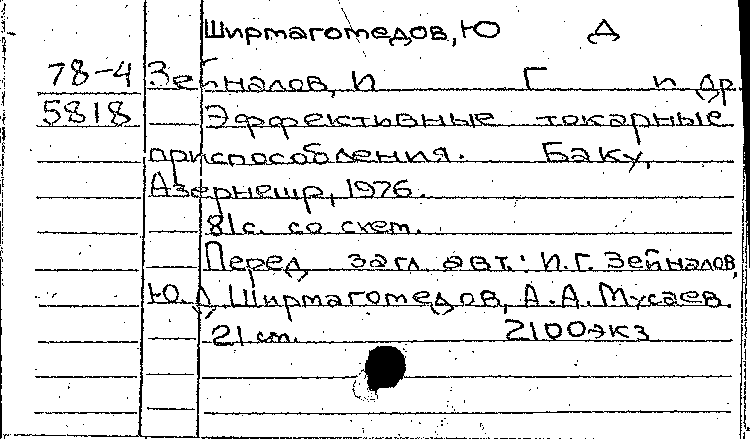 Ширмагомедов, Ю Д
78-4 Зейналов, И Г и др
5818 Эффективные токарные
приспособления. Баку,
Азернешр, 1976.
81с. со схем.
Перед загл. авт.: И.Г. Зейналов,
Ю.Д. Ширмагомедов, А.А. Мусаев.
21 см. 2100экз